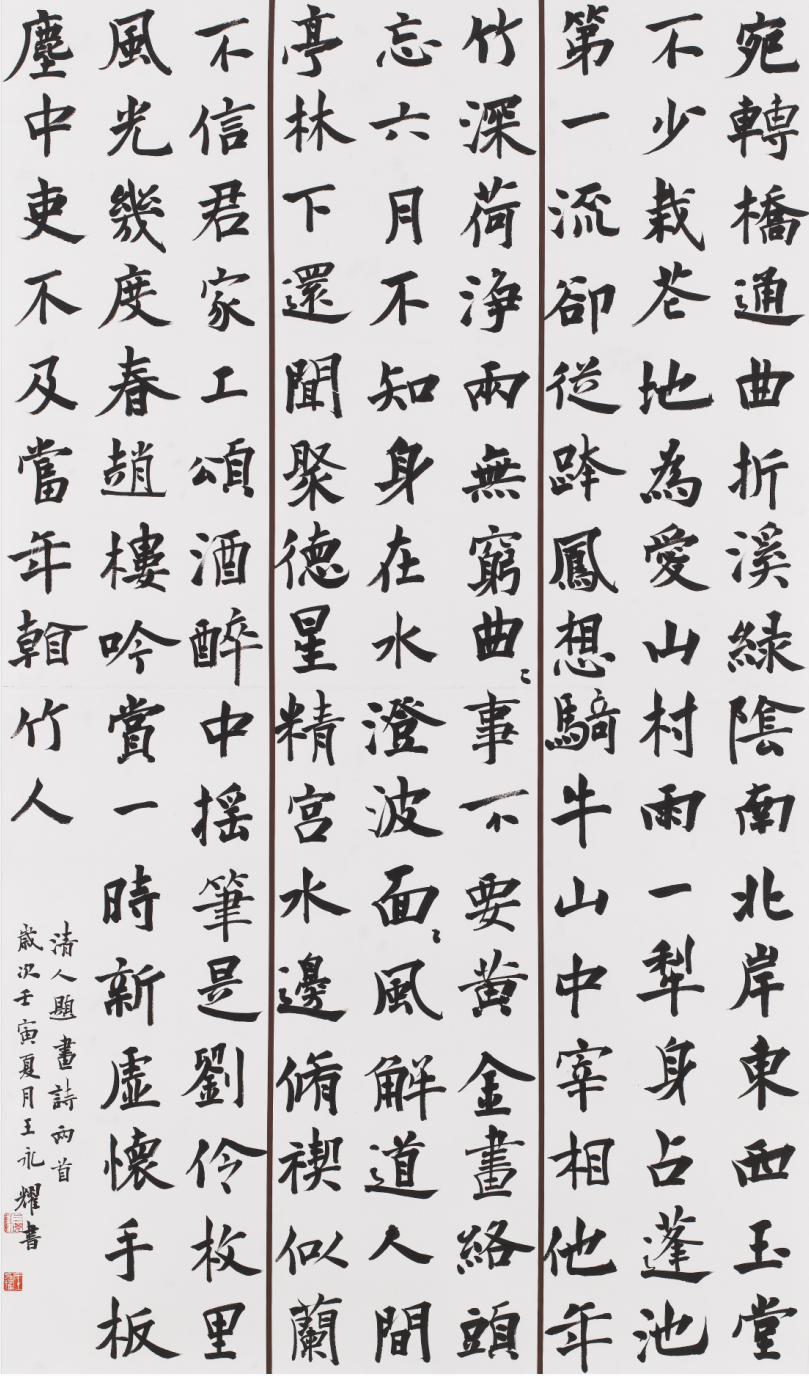 宛轉橋通曲折溪綠陰南北岸東西玉堂
不少栽花地為愛山村雨一犁身占蓬池
第一流卻從跨鳳想騎牛山中宰相他年
竹深荷淨兩無窮曲〻事不要黃金畫絡頭
忘六月不知身在水澄波面〻風解道人間
亭林下還聞聚德星精宮水邊脩禊似蘭
不信君家工頌酒醉中搖筆是劉伶枚里
風光幾度春趙樓吟賞一時新虛懷手板
塵中吏不及當年翰竹人
清人題畫詩兩首
歲次壬寅夏月王永耀書